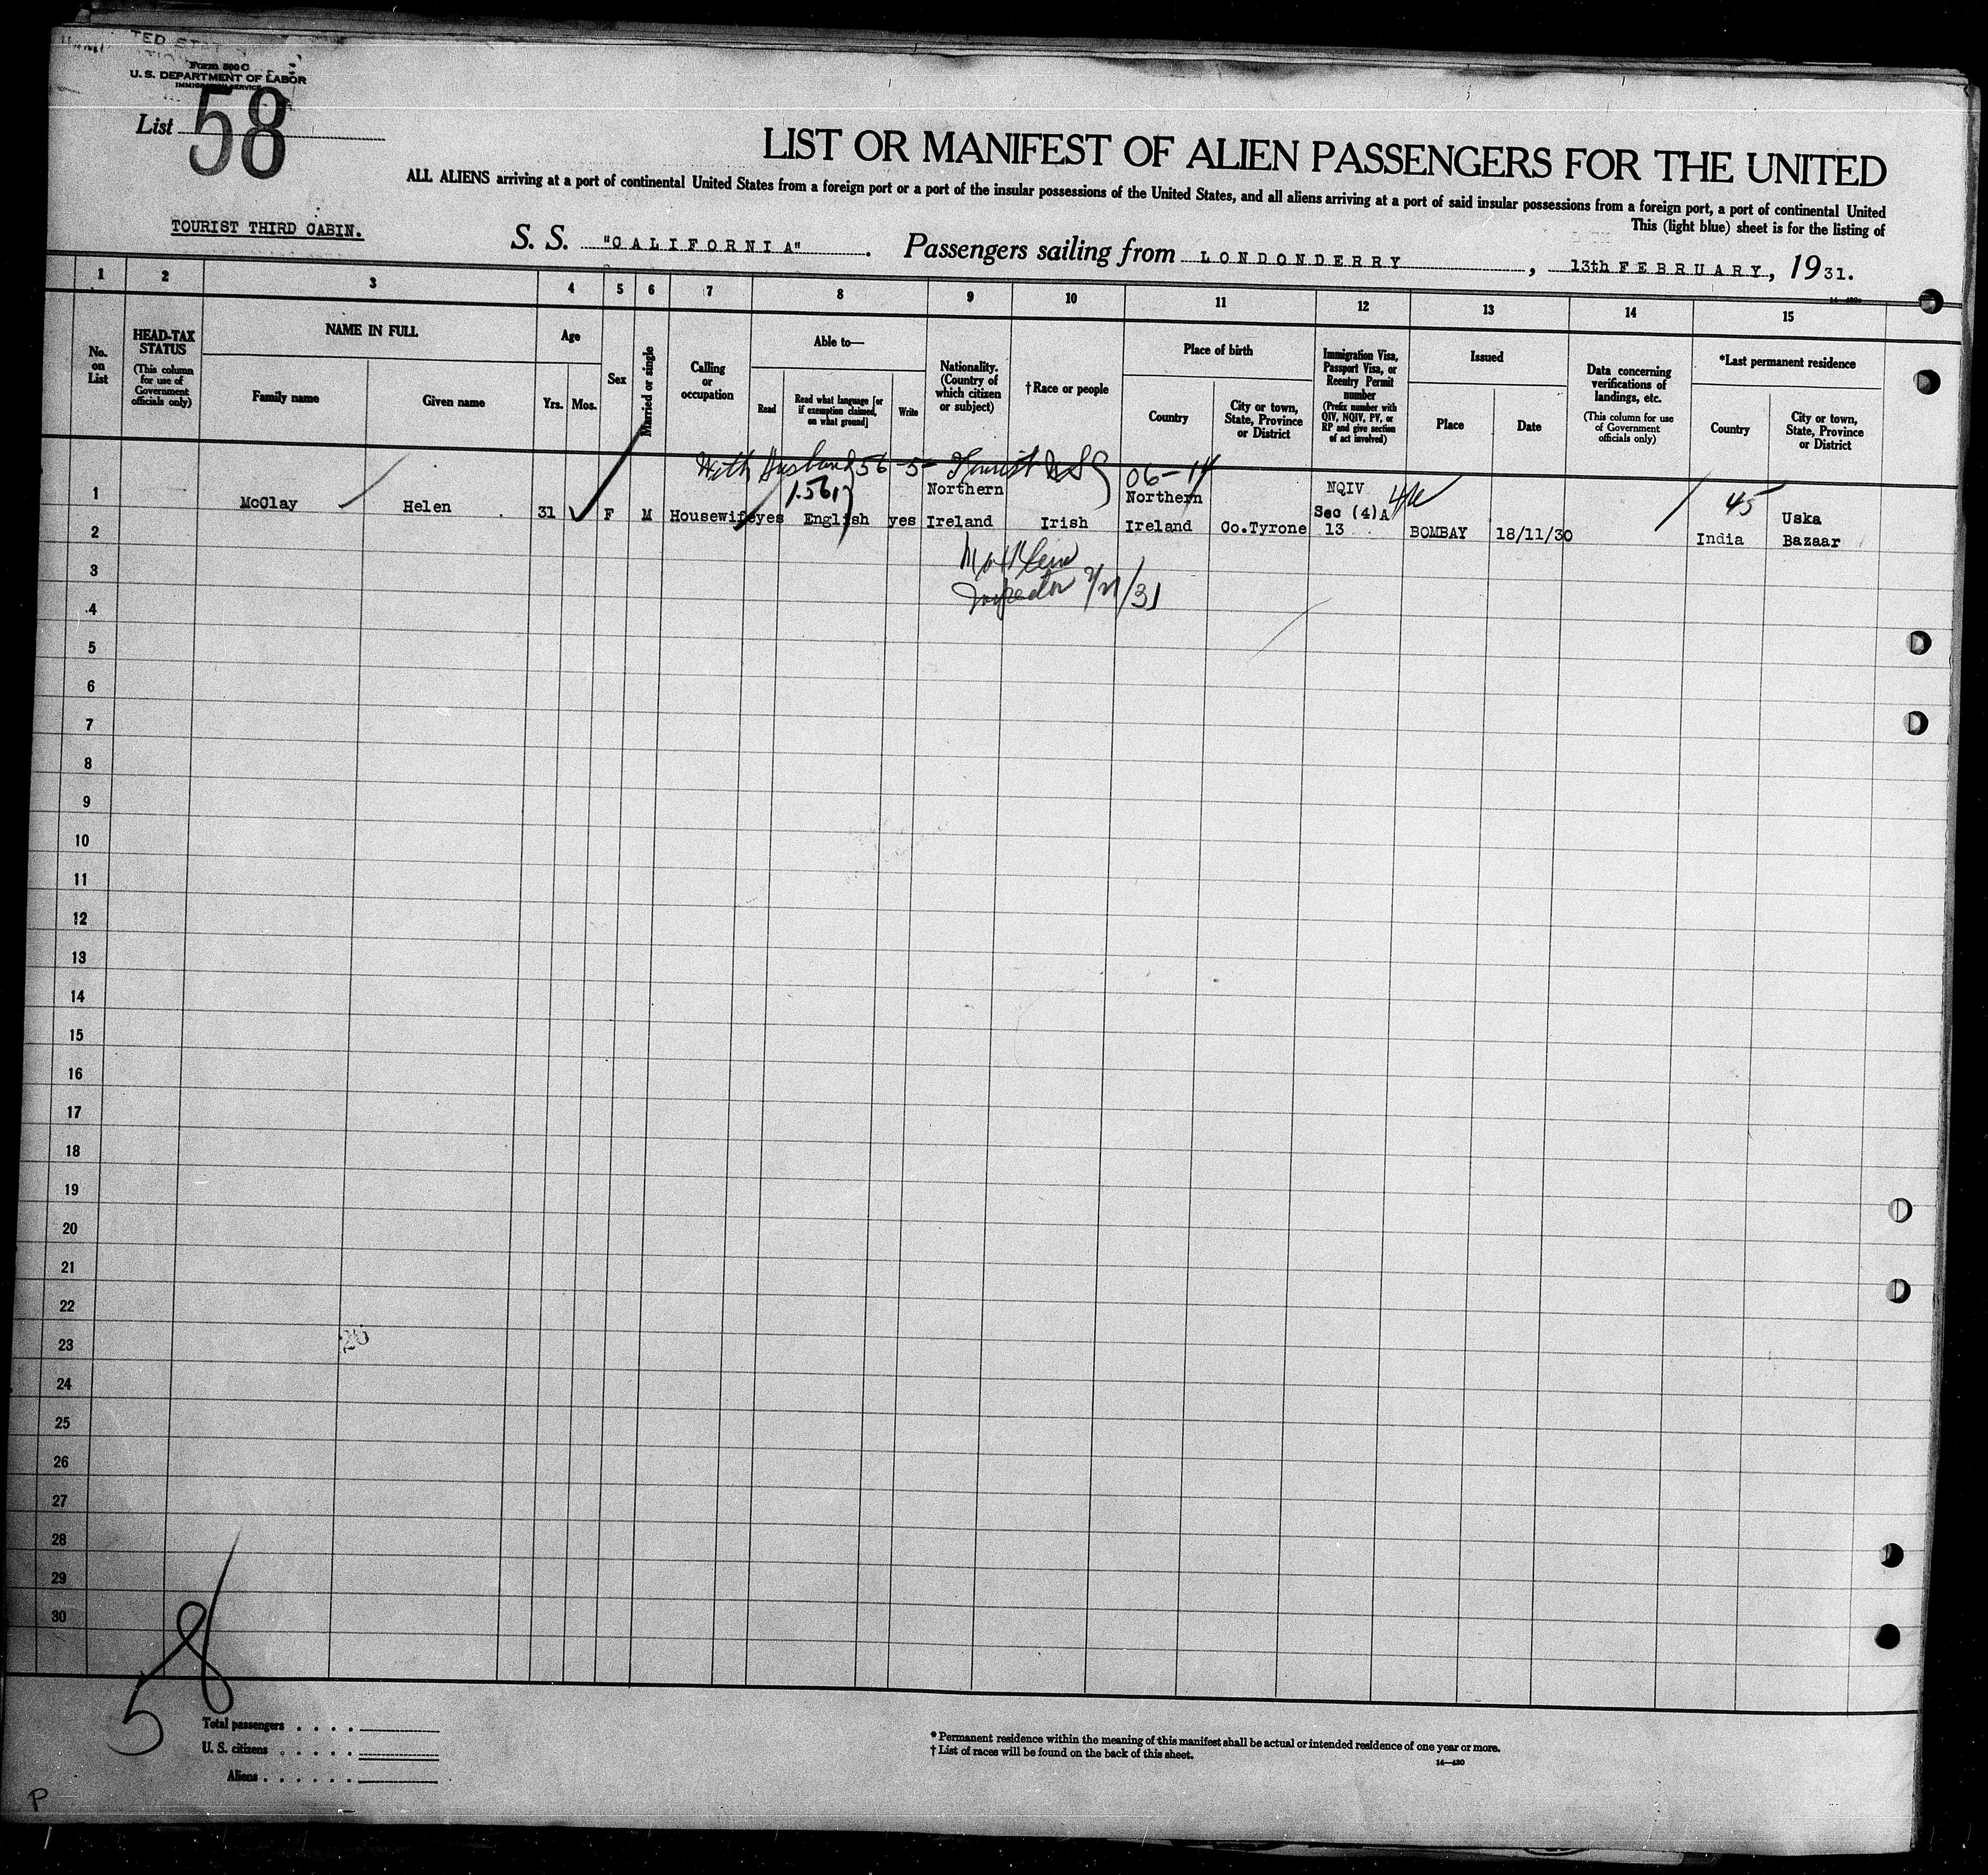 Form 500 C
U. S. DEPARTMENT OF LABOR
IMMIGRATION SERVICE
List 58
LIST OR MANIFEST OF ALIEN PASSENGERS FOR THE UNITED
ALL ALIENS arriving at a port of continental United States from a foreign port or a port of the insular possessions of the United States, and all aliens arriving at a port of said insular possessions from a foreign port, a port of continental United
This (light blue) sheet is for the listing of
TOURIST THIRD CABIN.
S. S. "CALIFORNIA". Passengers sailing from LONDONDERRY, 13th FEBRUARY, 1931.
1 2 3 4 5 6 7 8 9 10 11 12 13 14 15
No. on List
HEAD-TAX STATUS
(This column for use of Government officials only)
NAME IN FULL
Family name
Given name
Age
Yrs. Mos.
Sex
Married or single
Calling or occupation
Able to—
Read
Read what language [or if exemption claimed, on what ground]
Write
Nationality. (Country of which citizen or subject)
†Race or people
Place of birth
Country
City or town, State, Province or District
Immigration Visa, Passport Visa, or Reentry Permit number
(Prefix number with QIV, NQIV, PV, or RP and give section of act involved)
Issued
Place
Date
Data concerning verifications of landings, etc.
(This column for use of Government officials only)
*Last permanent residence
Country
City or town, State, Province or District
With Husband 56-5- Tourist 06-14
1561
1 McClay Helen 31 F M Housewife yes English yes Northern Ireland Irish Northern Ireland Co.Tyrone NQIV Sec (4)A 13 BOMBAY 18/11/30 45 India Uska Bazaar
Inspector 2/21/31
2
3
4
5
6
7
8
9
10
11
12
13
14
15
16
17
18
19
20
21
22
23
24
25
26
27
28
29
30
58
Total passengers . . . .
U. S. citizens . . . . .
Aliens . . . . . .
* Permanent residence within the meaning of this manifest shall be actual or intended residence of one year or more.
† List of races will be found on the back of this sheet.
14—430
P